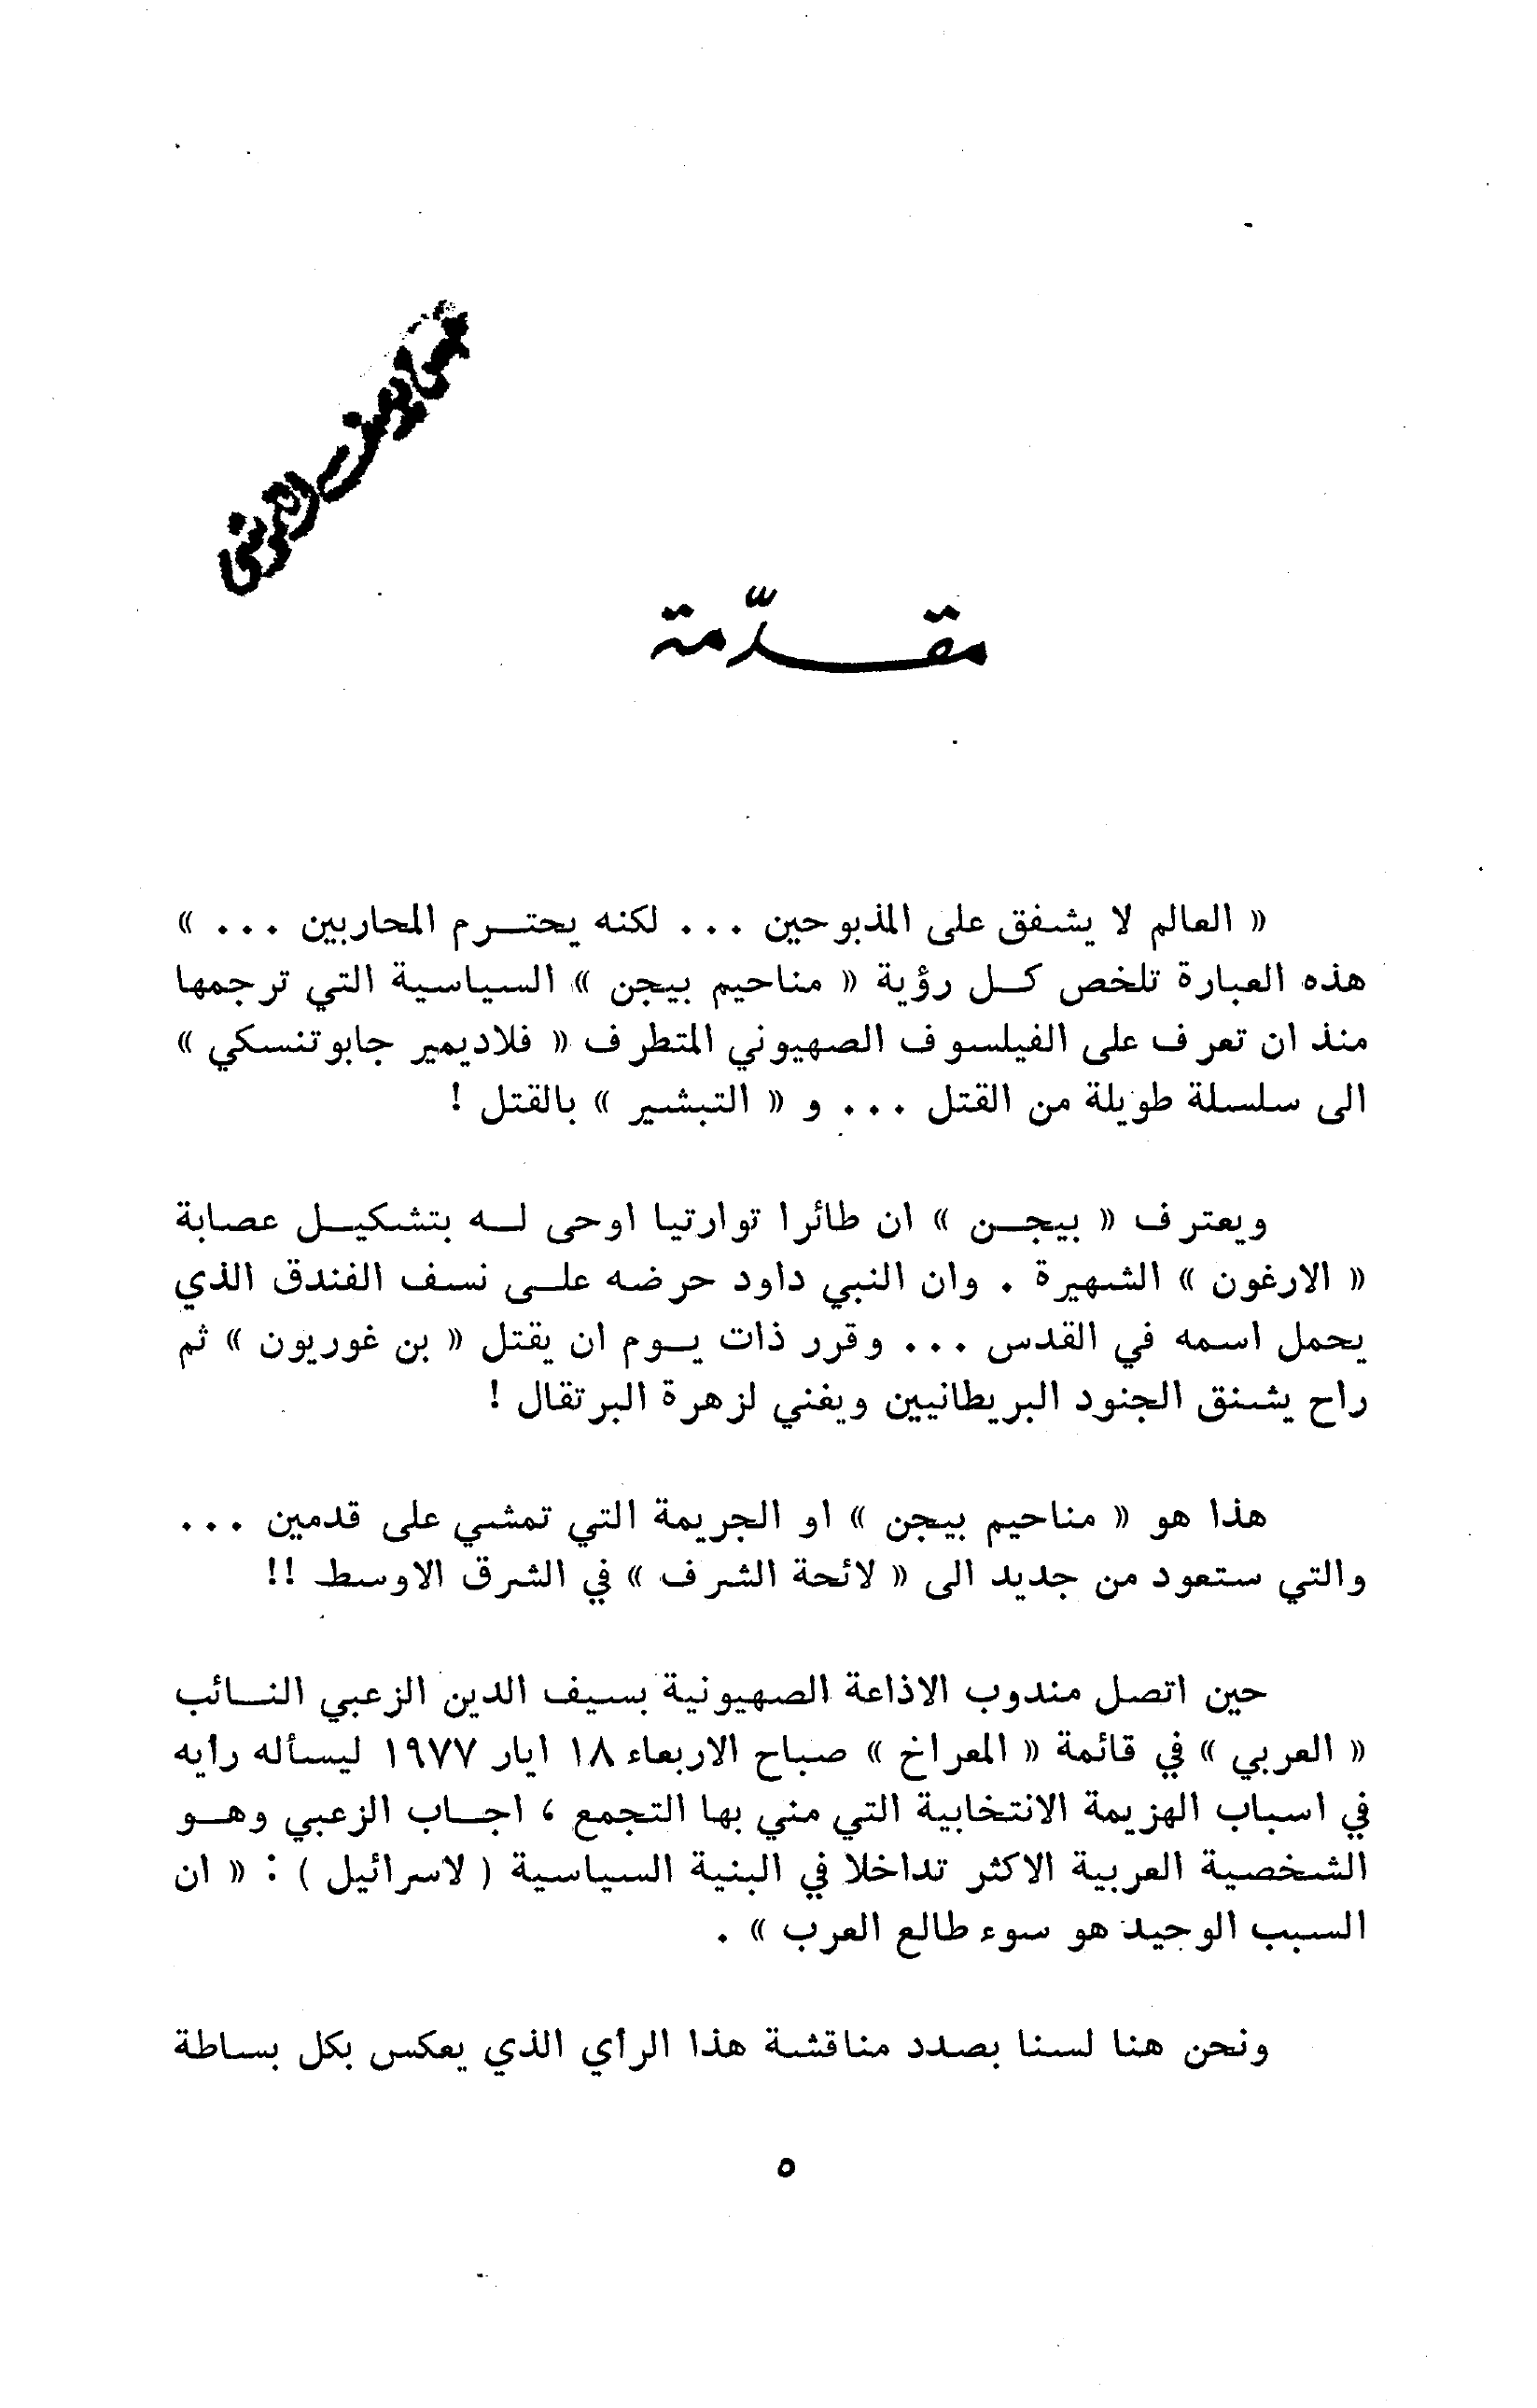 مقــدّمة
« العالم لا يشفق على المذبوحين ... لكنه يحتــرم المحاربين ... »
هذه العبارة تلخص كــل رؤية « مناحيم بيجن » السياسية التي ترجمها
منذ ان تعرف على الفيلسوف الصهيوني المتطرف « فلاديمير جابوتنسكي »
الى سلسلة طويلة من القتل ... و « التبشير » بالقتل !
ويعترف « بيجــن » ان طائرا توارتيا اوحى لــه بتشكيــل عصابة
« الارغون » الشهيرة . وان النبي داود حرضه علــى نسف الفندق الذي
يحمل اسمه في القدس ... وقرر ذات يــوم ان يقتل « بن غوريون » ثم
راح يشنق الجنود البريطانيين ويغني لزهرة البرتقال !
هذا هو « مناحيم بيجن » او الجريمة التي تمشي على قدمين ...
والتي ستعود من جديد الى « لائحة الشرف » في الشرق الاوسط !!
حين اتصل مندوب الاذاعة الصهيونية بسيف الدين الزعبي النــائب
« العربي » في قائمة « المعراخ » صباح الاربعاء ١٨ ايار ١٩٧٧ ليسأله رأيه
في اسباب الهزيمة الانتخابية التي مني بها التجمع ، اجــاب الزعبي وهــو
الشخصية العربية الاكثر تداخلا في البنية السياسية ( لاسرائيل ) : « ان
السبب الوحيد هو سوء طالع العرب » .
ونحن هنا لسنا بصدد مناقشة هذا الرأي الذي يعكس بكل بساطة
٥